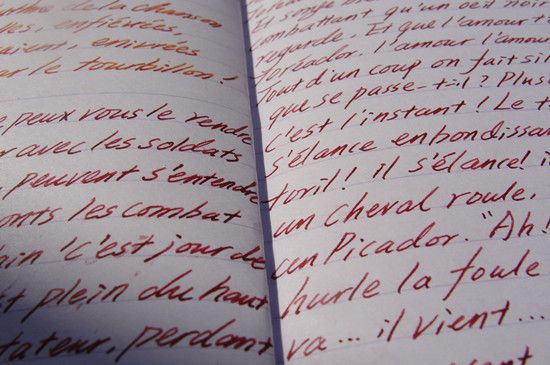 de la chanson
enfiévrées,
enivrées
le tourbillon!
peux vous le rendre
avec les soldats
peuvent s'entendre
les combat
c'est jour de
plein du haut
perdant
combattant qu'un oeil noir
regarde. Et que l'amour t
toréador. l'amour l'amou
Tout d'un coup on fait sil
que se passe-t-il? Plus
C'est l'instant! Le t
s'élance en bondissan
toril! il s'élance! i
un cheval roule,
un Picador. "Ah!
hurle la foule
va... il vient...